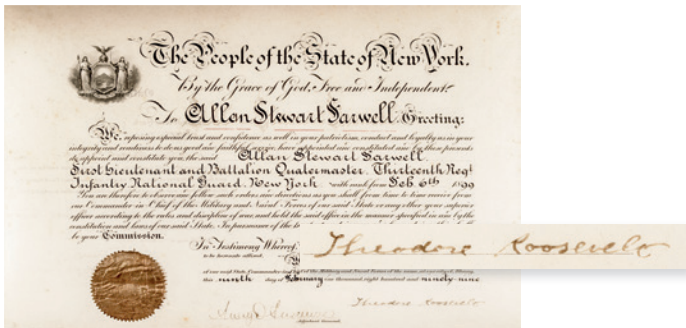 The People of the State of New York.
By the Grace of God, Free and Independent:
To Allan Stewart Farwell Greeting:
We, reposing especial trust and confidence as well in your patriotism, conduct and loyalty, as in your
integrity and readiness to do us good and faithful service, have appointed and constituted and by these presents
do appoint and constitute you, the said Allan Stewart Farwell
First Lieutenant and Battalion Quatermaster, Thirteenth Regt
Infantry National Guard, New York with rank from Feb. 6th 1899
You are therefore to observe and follow such orders and directions as you shall from time to time receive from
our Commander in Chief of the Military and Naval Forces of our said State or any other your superior
officer according to the rules and discipline of war, and hold the said office in the manner specified in and by the
constitution and laws of our said State. In pursuance of the
be your Commission.
In Testimony Whereof,
to be hereunto affixed.
Theodore Roosevelt
this ninth day of February one thousand eight hundred and ninety-nine
Theodore Roosevelt
Adjutant General